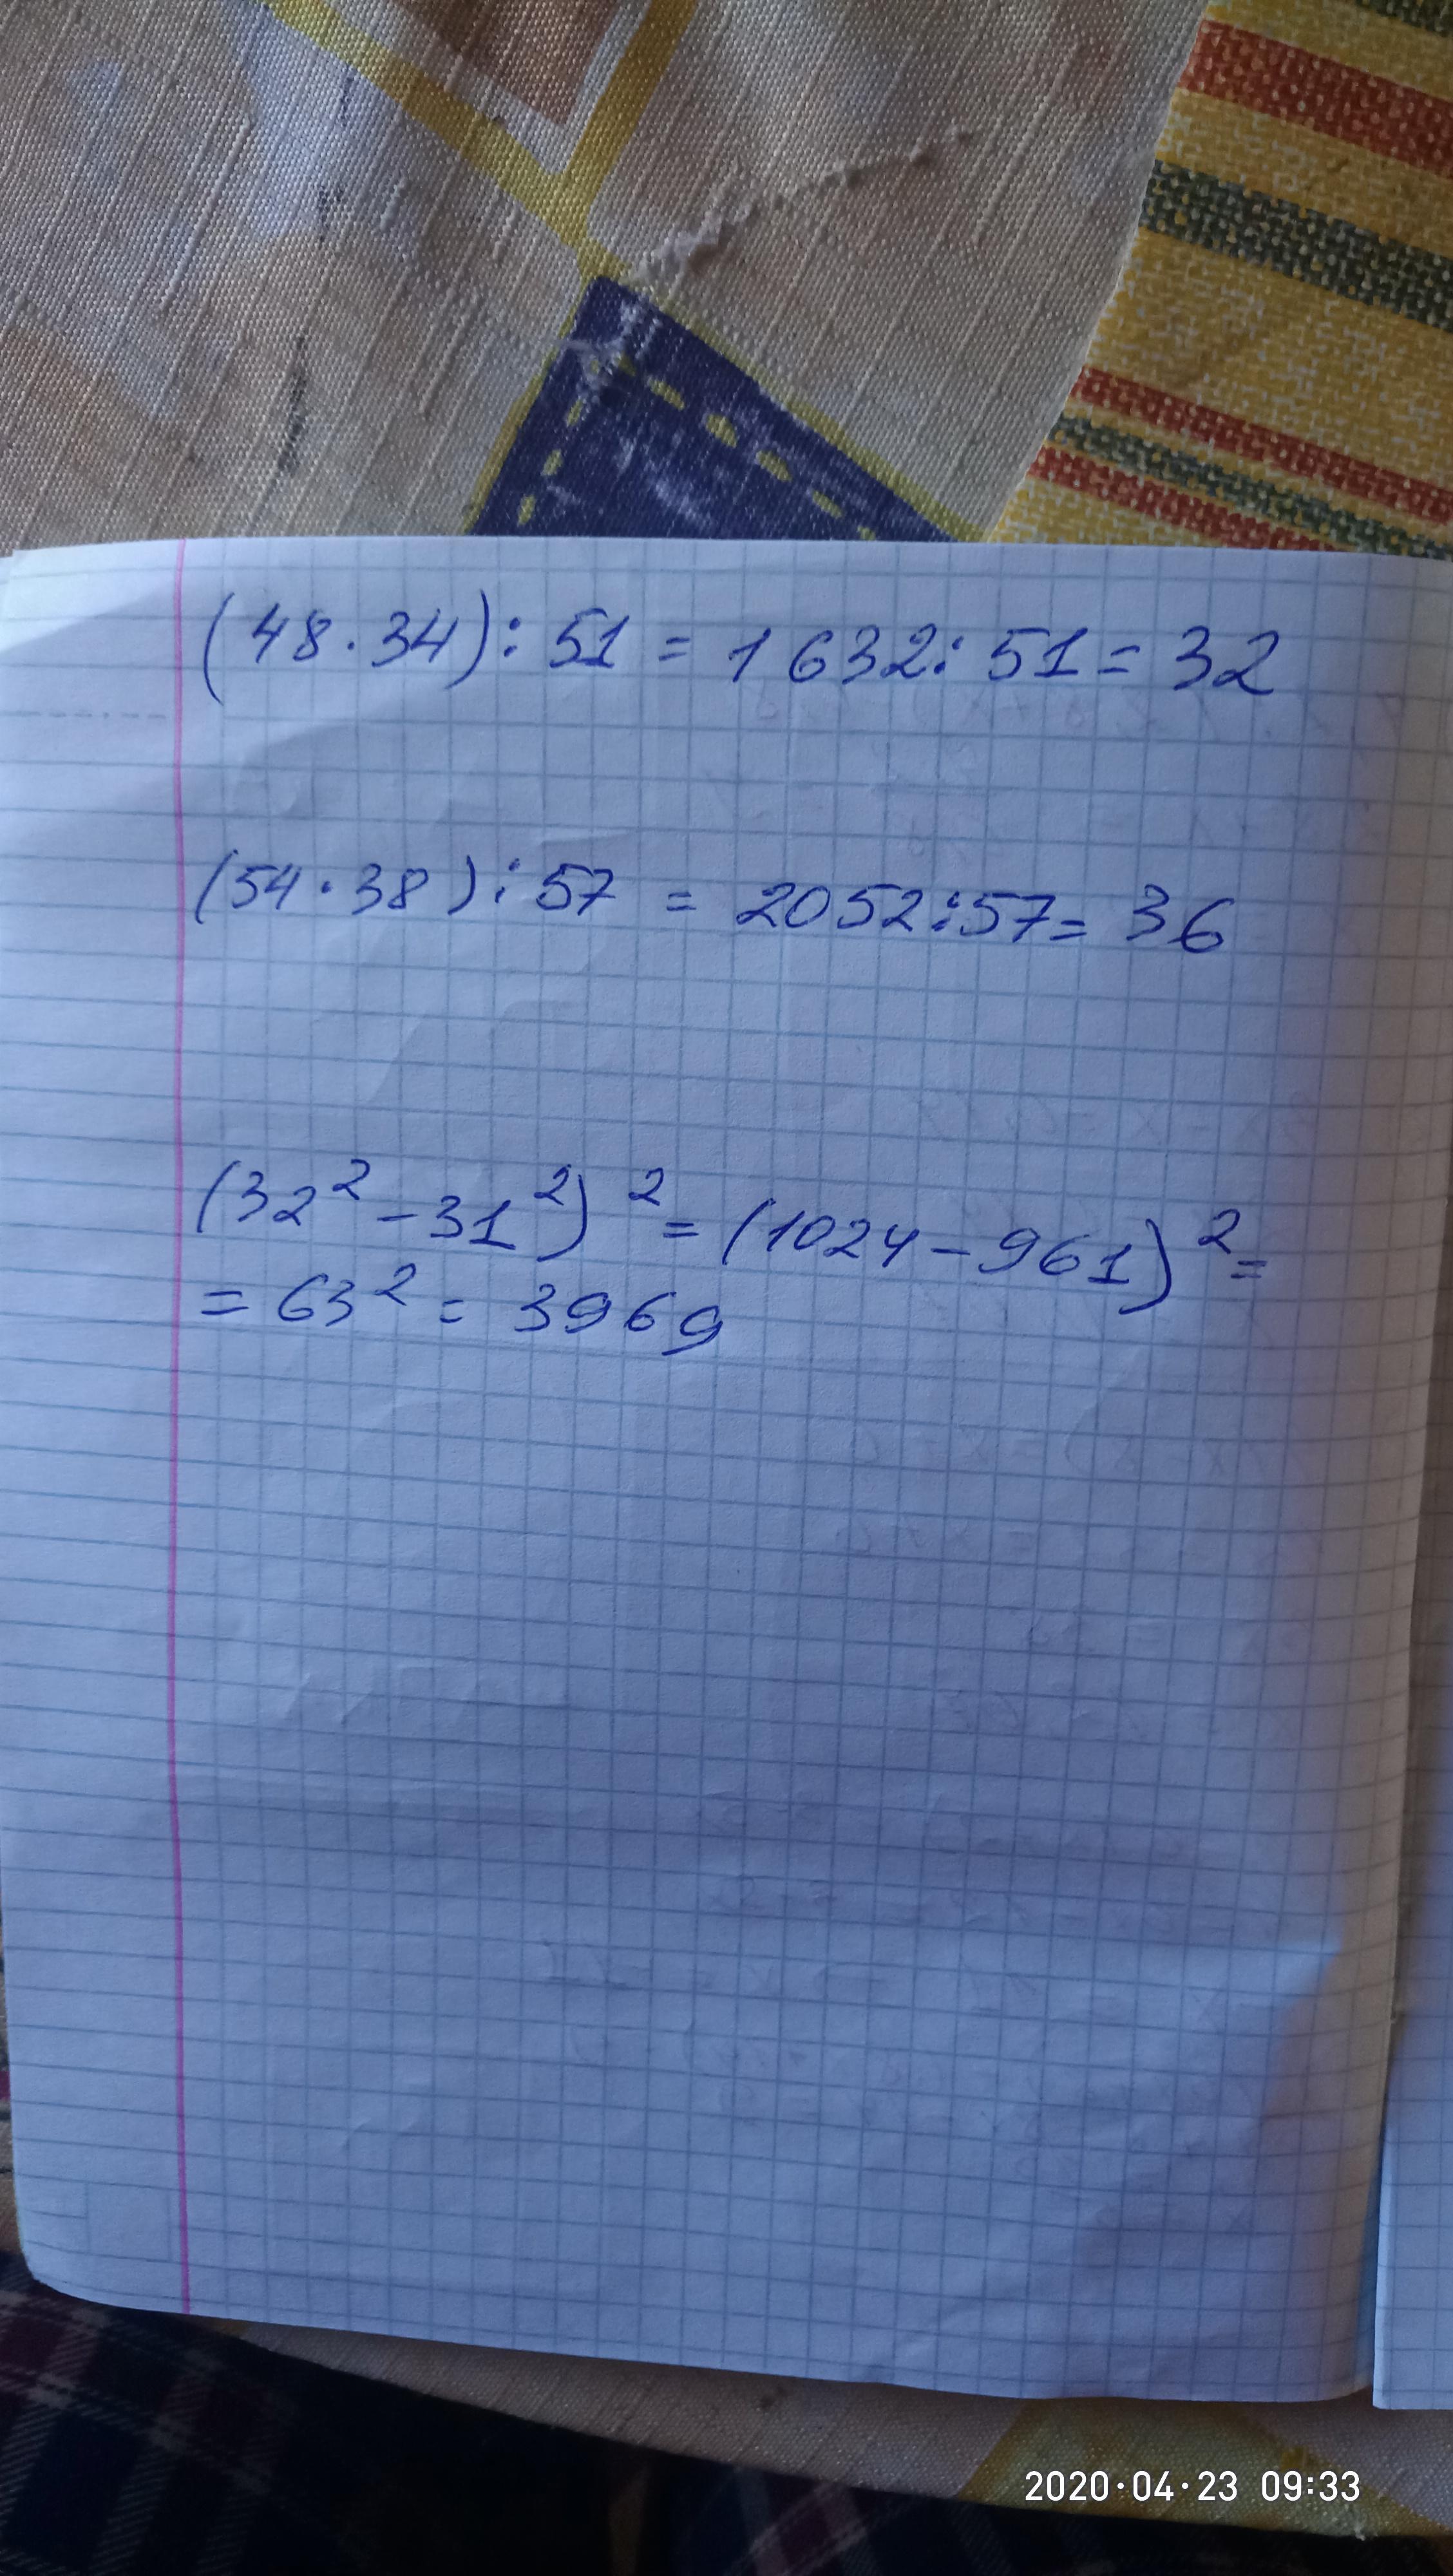 (48·34):51 = 1632:51 = 32
(54·38):57 = 2052:57 = 36
(32² - 31²)² = (1024 - 961)² =
= 63² = 3969
2020·04·23 09:33